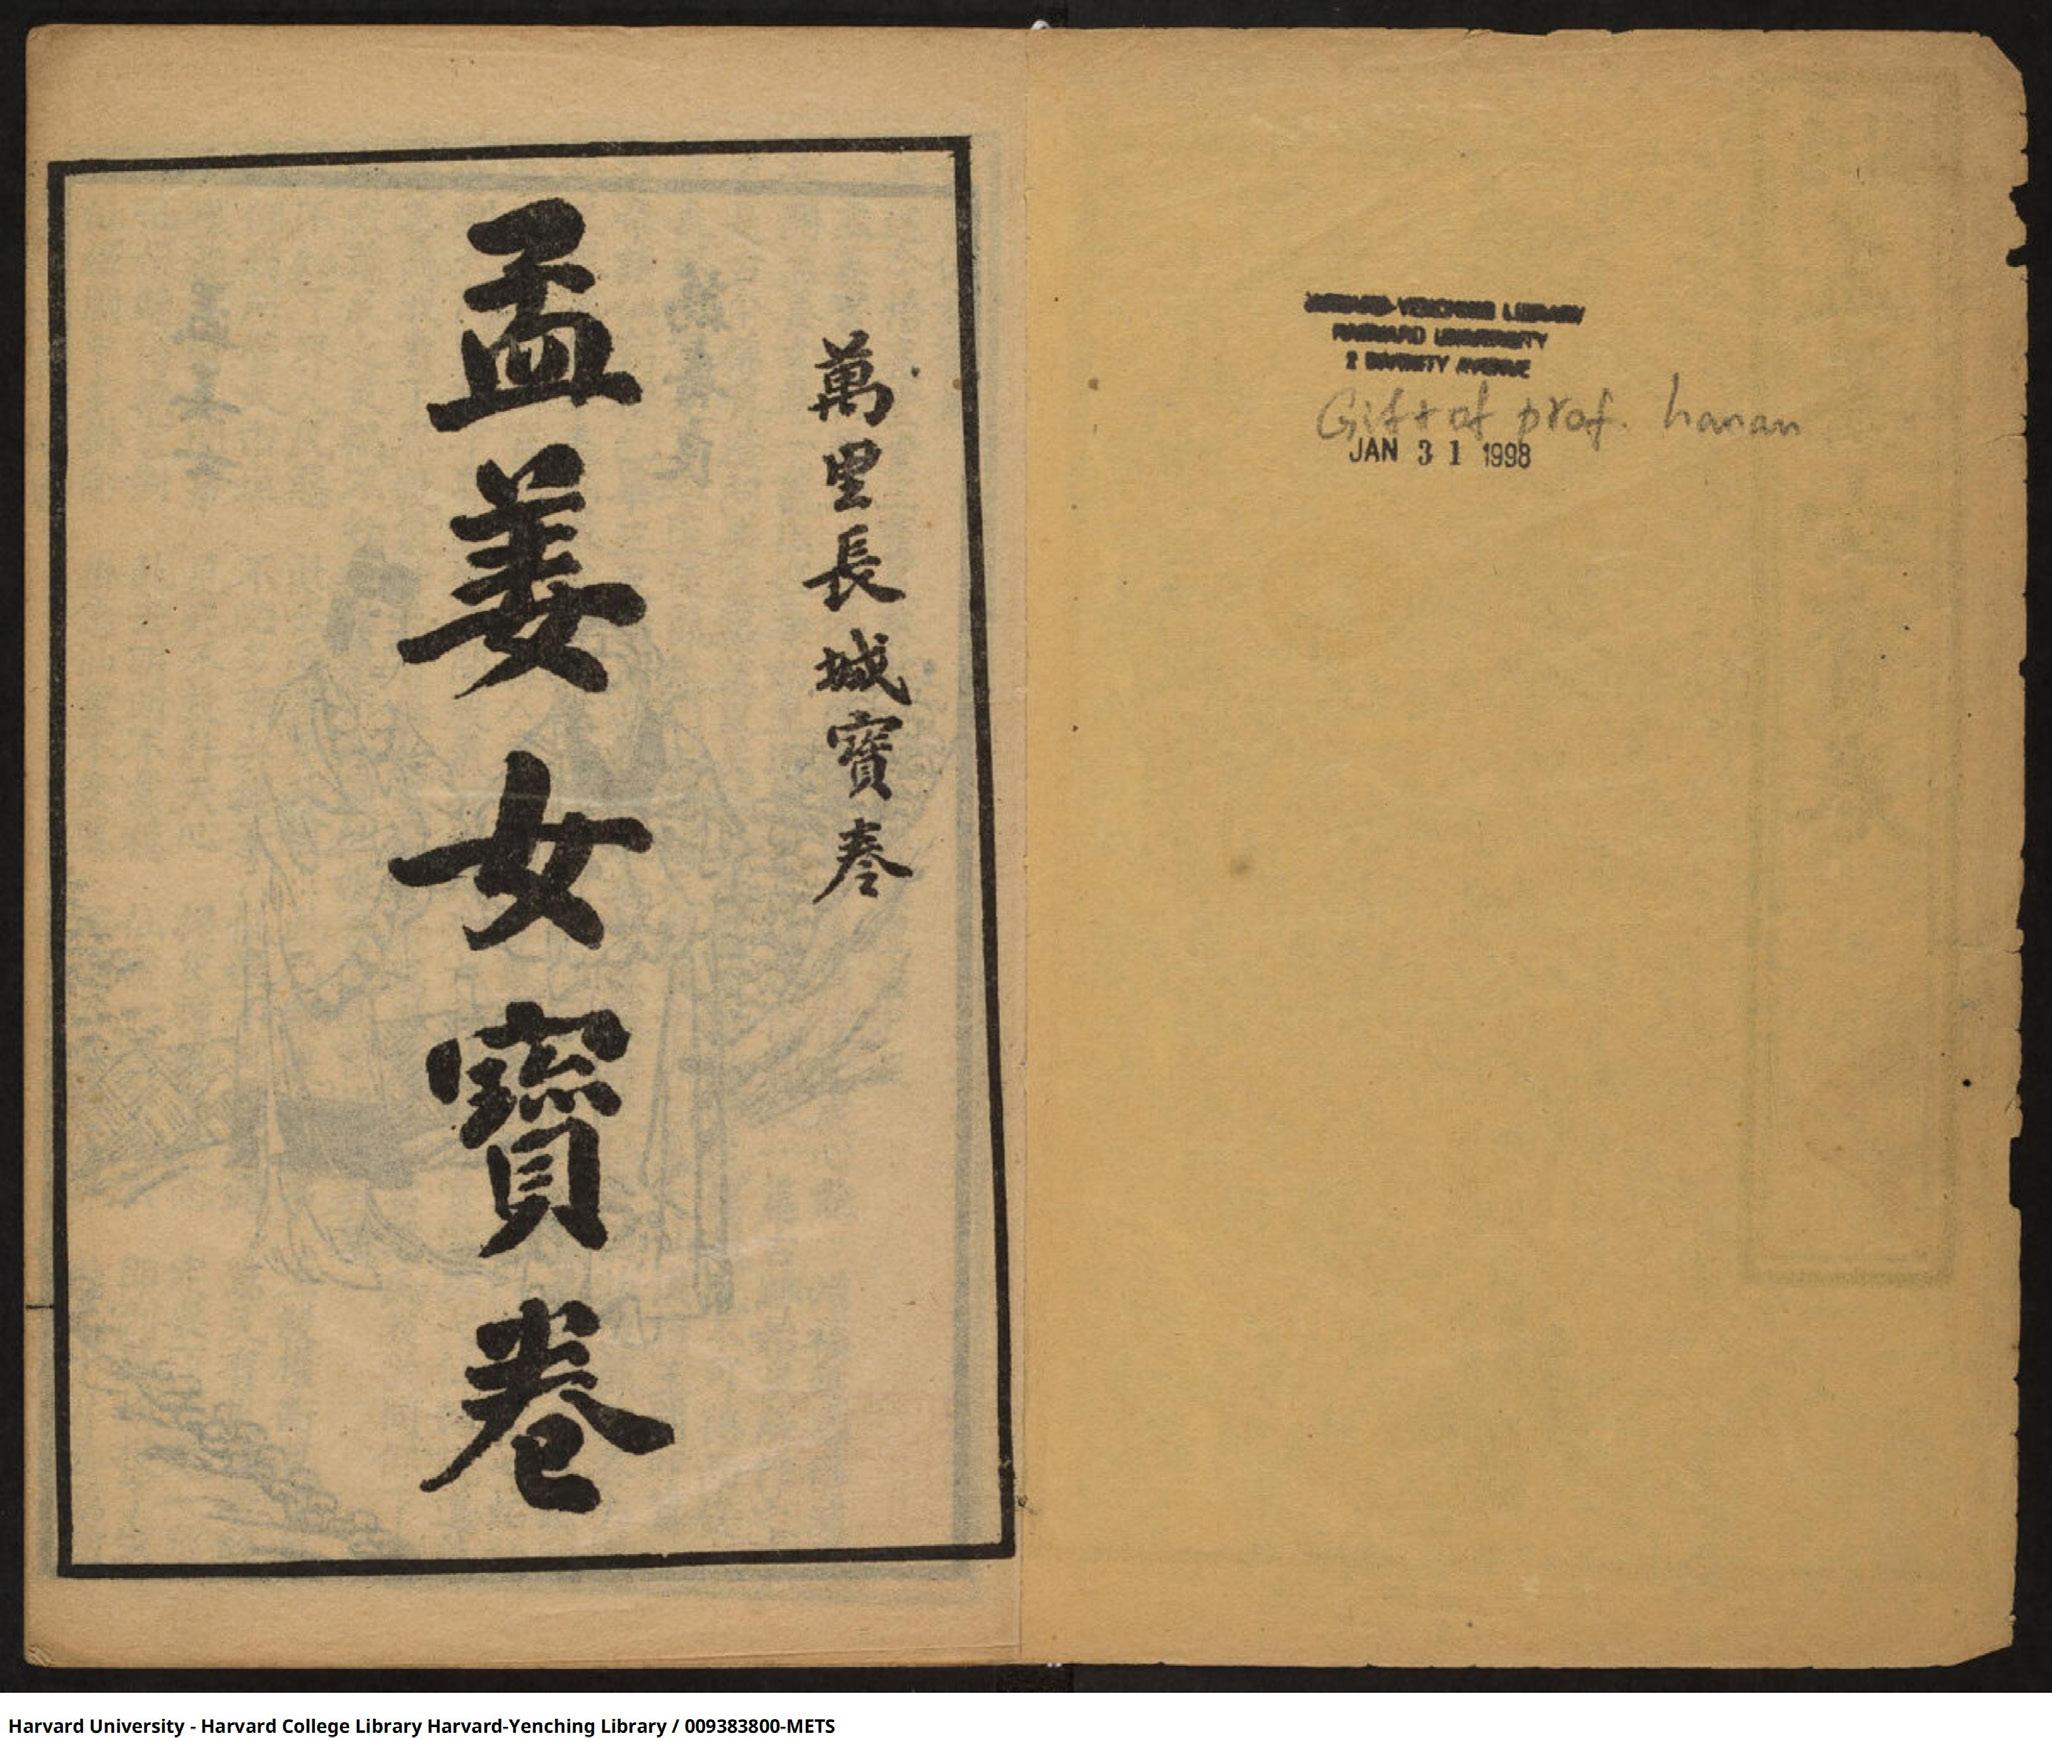 萬里長城寶卷
孟姜女寶卷
HARVARD-YENCHING LIBRARY
HARVARD UNIVERSITY
2 DIVINITY AVENUE
Gift of prof. hanan
JAN 31 1998
Harvard University - Harvard College Library Harvard-Yenching Library / 009383800-METS